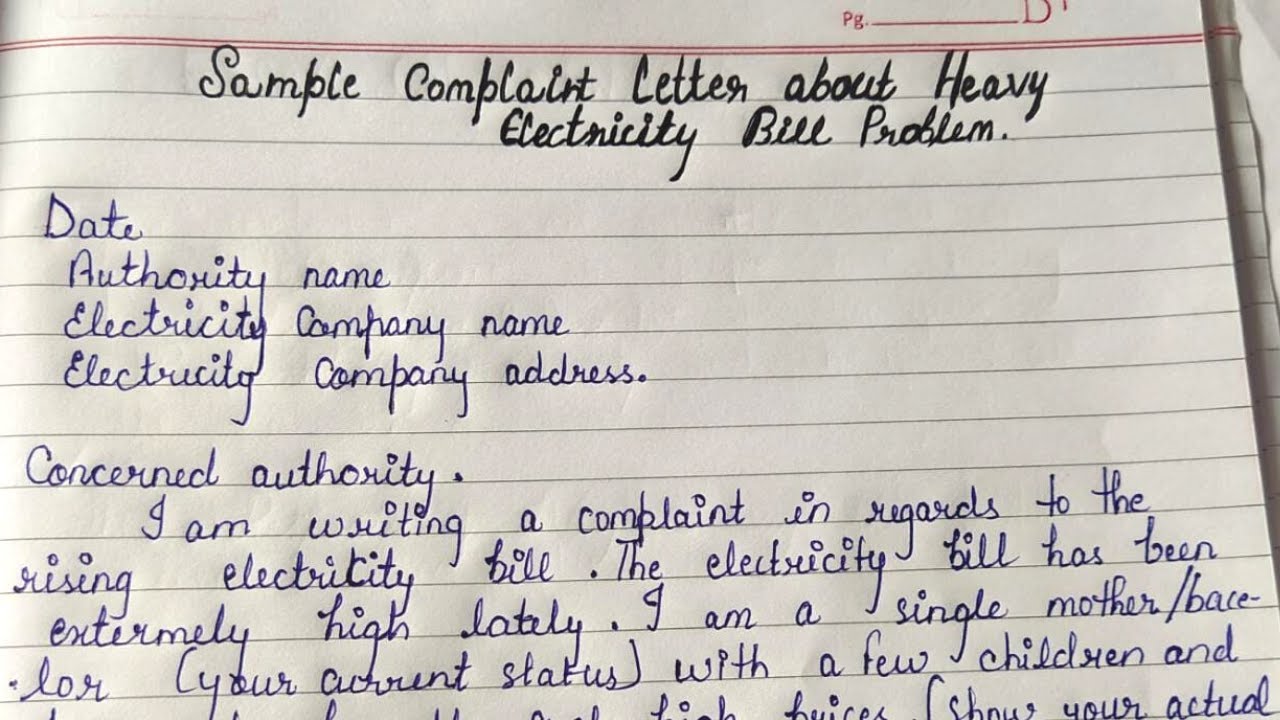 Pg.
Sample Complaint Letter about Heavy
Electricity Bill Problem.
Date
Authority name
Electricity Company name
Electrucity Company address.
Concerned authority.
I am writing a complaint in regards to the
rising electricity bill. The electricity bill has been
extermely high lately. I am a single mother/bace-
lor (your current status) with a few children and
high (show your actual